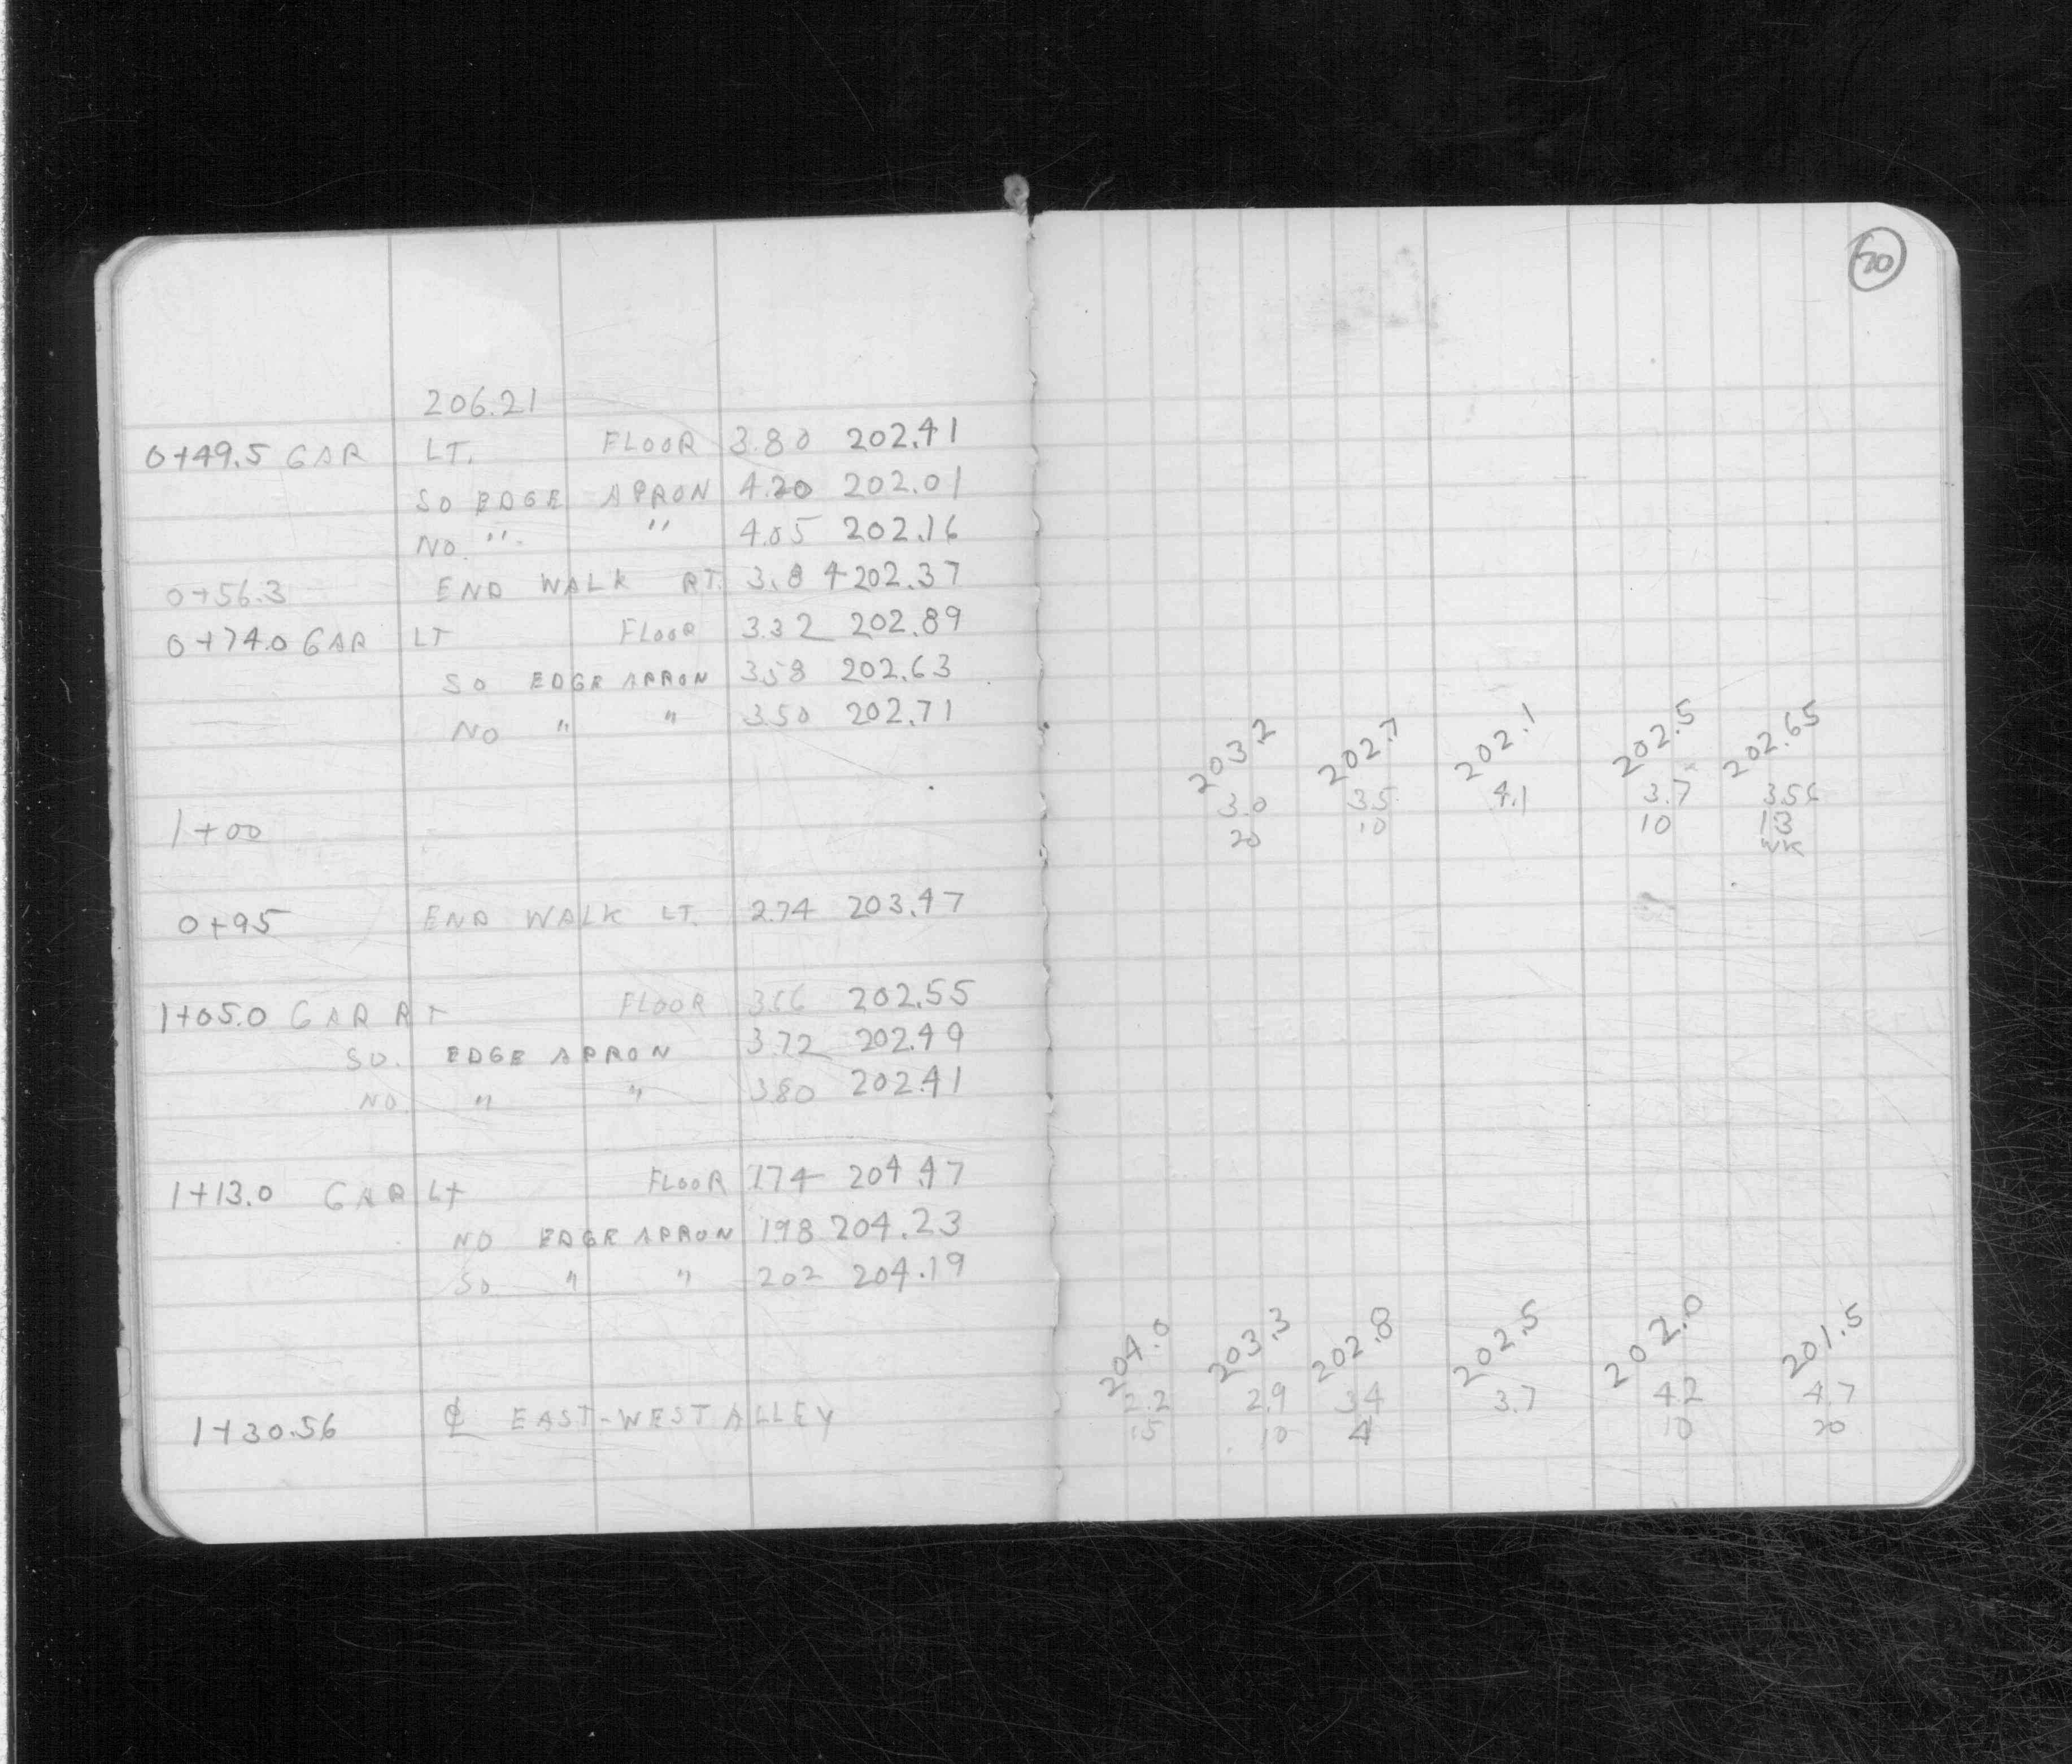 206.21
0+49.5 GAR LT. FLOOR 3.80 202.41
SO EDGE APRON 4.20 202.01
NO. " " 4.05 202.16
0+56.3 END WALK RT. 3.84 202.37
0+74.0 GAR LT FLOOR 3.32 202.89
SO EDGE APRON 3.58 202.63
NO " " 3.50 202.71
1+00
0+95 END WALK LT. 2.74 203.47
1+05.0 GAR RT FLOOR 3.66 202.55
SO. EDGE APRON 3.72 202.49
NO. " " 3.80 202.41
1+13.0 GAR LT FLOOR 1.74 204.47
NO EDGE APRON 1.98 204.23
SO. " " 2.02 204.19
1+30.56 ℄ EAST-WEST ALLEY
70
203.2 202.7 202.1 202.5 202.65
3.0 3.5 4.1 3.7 3.56
20 10 10 13
WK
204.0 203.3 202.8 202.5 202.0 201.5
2.2 2.9 3.4 3.7 4.2 4.7
15 10 4 10 20